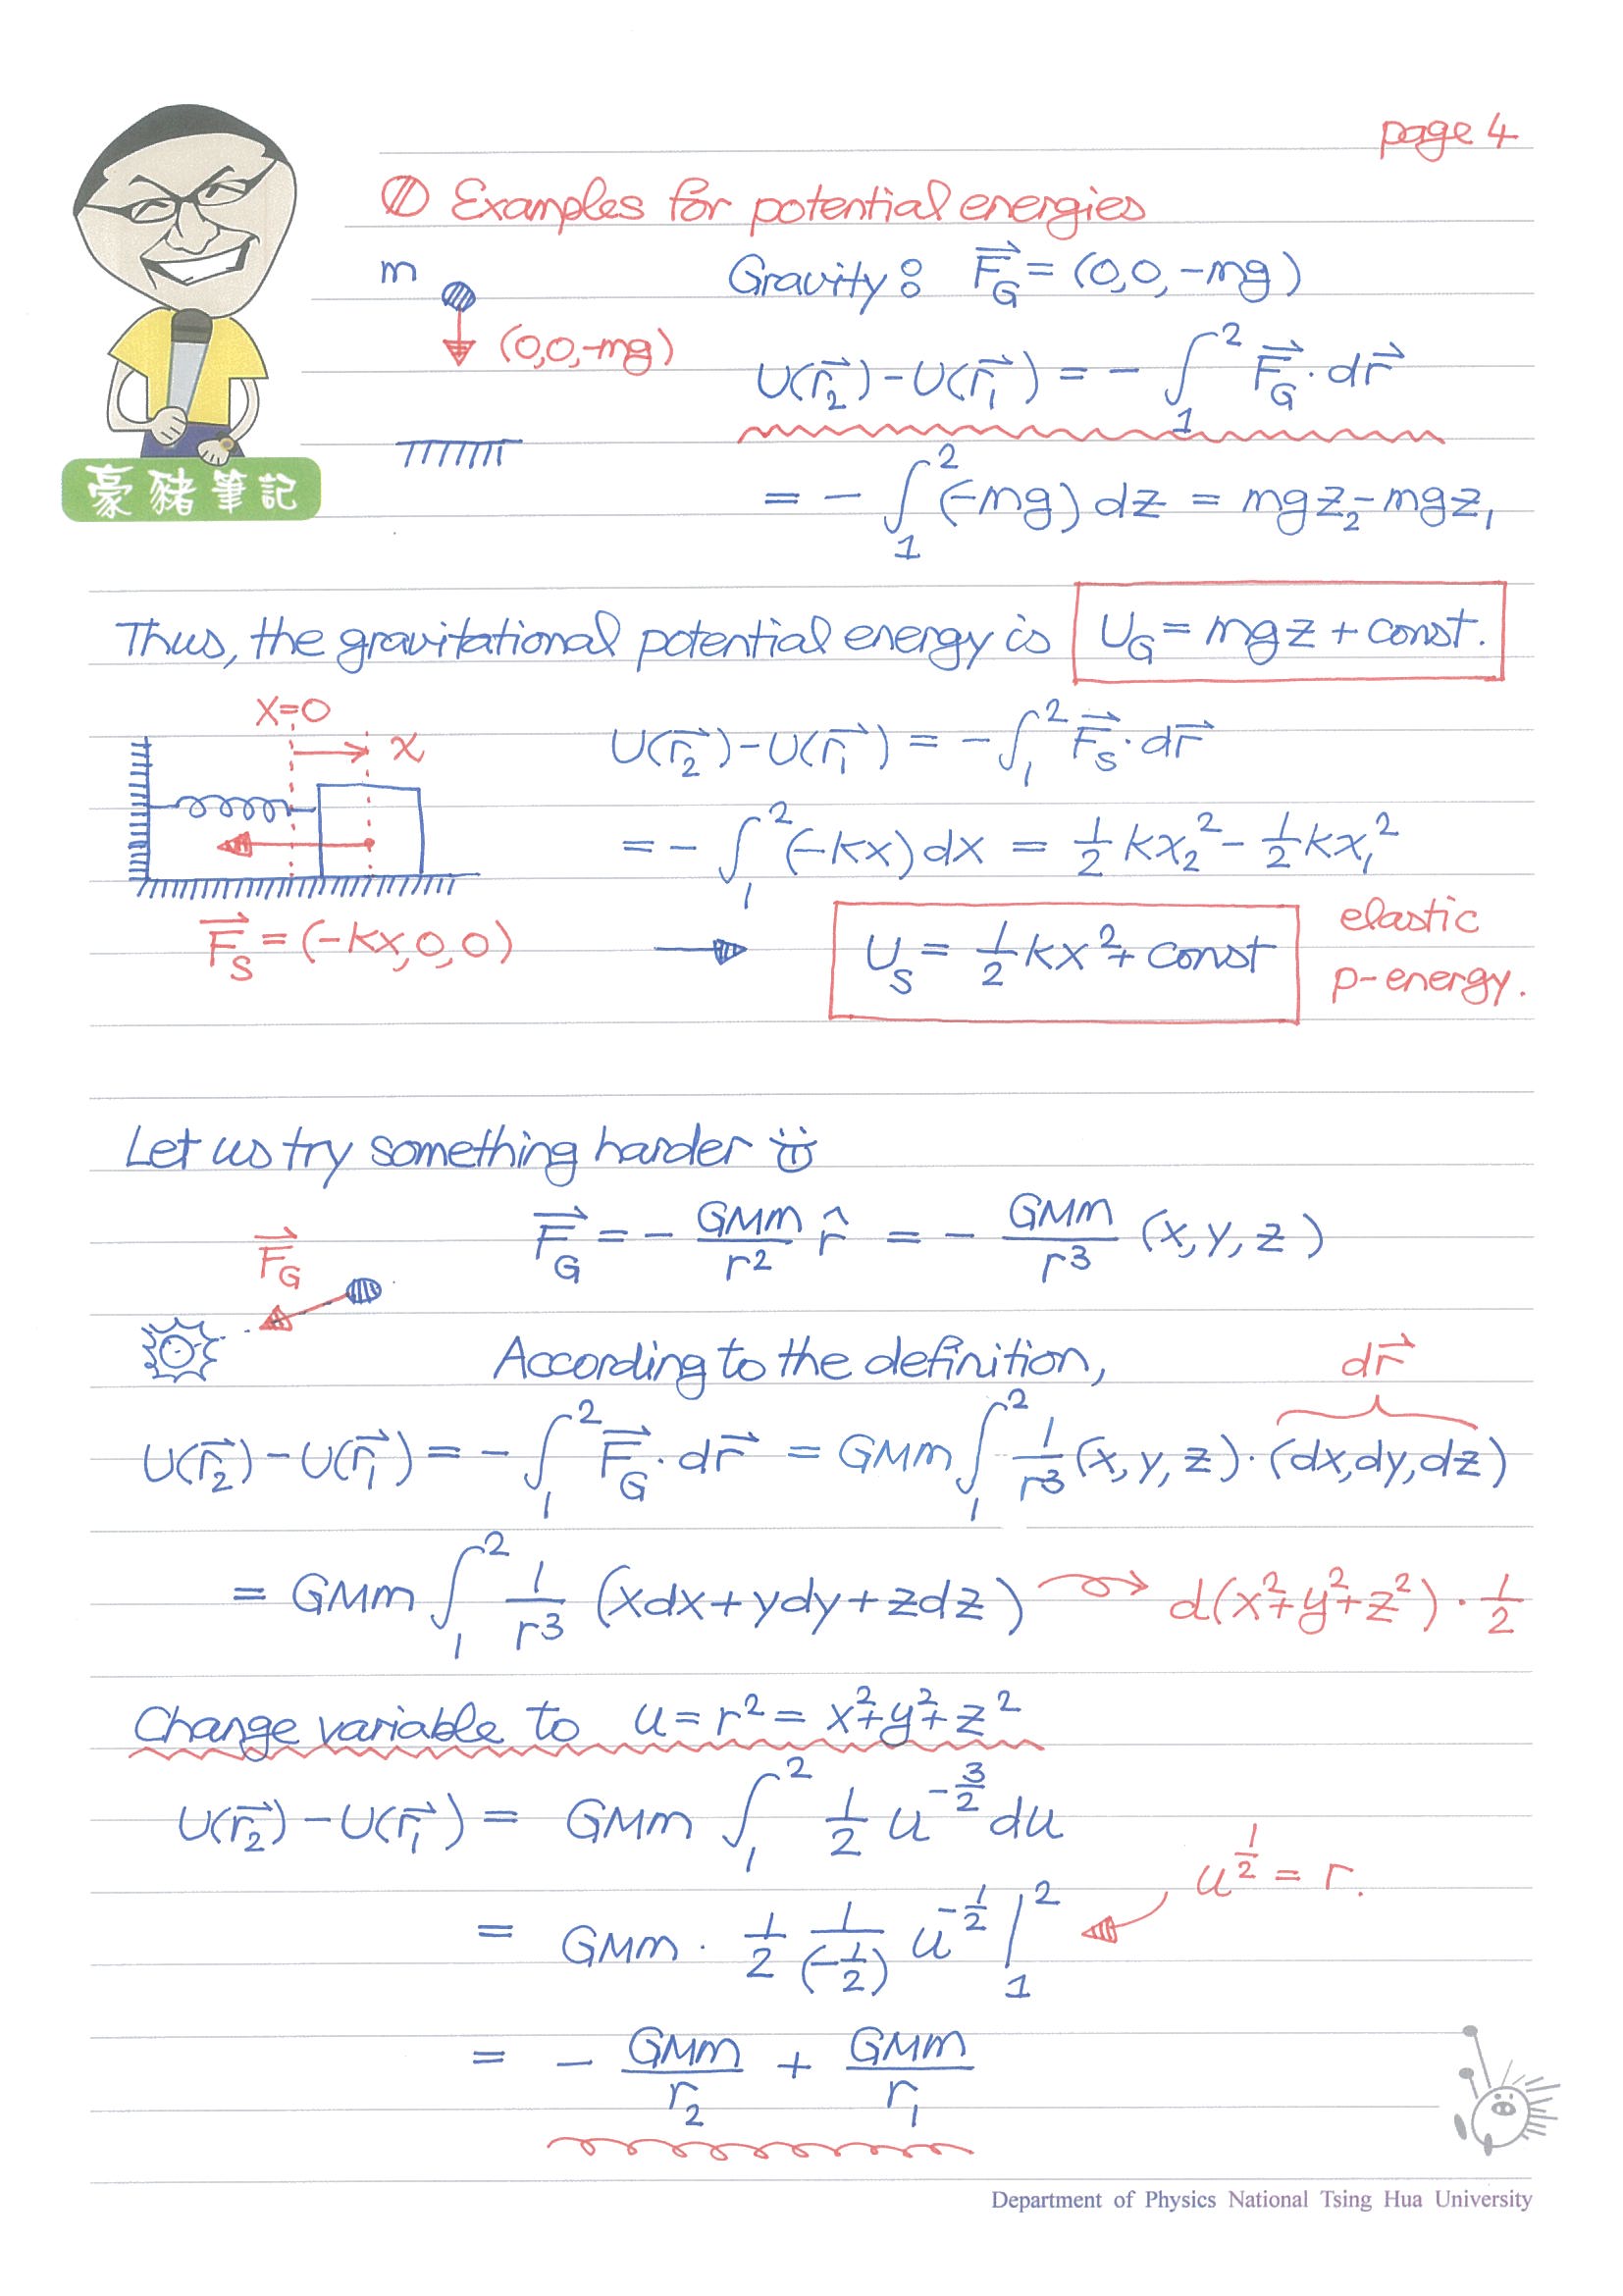 page 4
⊘ Examples for potential energies
m
Gravity: F⃗_G = (0,0,-mg)
(0,0,-mg)
U(r⃗₂) - U(r⃗₁) = - ∫₁² F⃗_G · dr⃗
豪豬筆記
= - ∫₁² (-mg) dz = mgz₂ - mgz₁
Thus, the gravitational potential energy is U_G = mgz + const.
x=0
x
U(r⃗₂) - U(r⃗₁) = - ∫₁² F⃗_S · dr⃗
= - ∫₁² (-kx) dx = 1/2 kx₂² - 1/2 kx₁²
F⃗_S = (-kx, 0, 0)
U_S = 1/2 kx² + const
elastic
p-energy.
Let us try something harder
F⃗_G = - GMm/r² r̂ = - GMm/r³ (x, y, z)
F⃗_G
According to the definition,
dr⃗
U(r⃗₂) - U(r⃗₁) = - ∫₁² F⃗_G · dr⃗ = GMm ∫₁² 1/r³ (x, y, z) · (dx, dy, dz)
= GMm ∫₁² 1/r³ (xdx + ydy + zdz) → d(x² + y² + z²) · 1/2
Change variable to u = r² = x² + y² + z²
U(r⃗₂) - U(r⃗₁) = GMm ∫₁² 1/2 u^(-3/2) du
u^(1/2) = r.
= GMm · 1/2 1/(-1/2) u^(-1/2) |₁²
= - GMm/r₂ + GMm/r₁
Department of Physics National Tsing Hua University